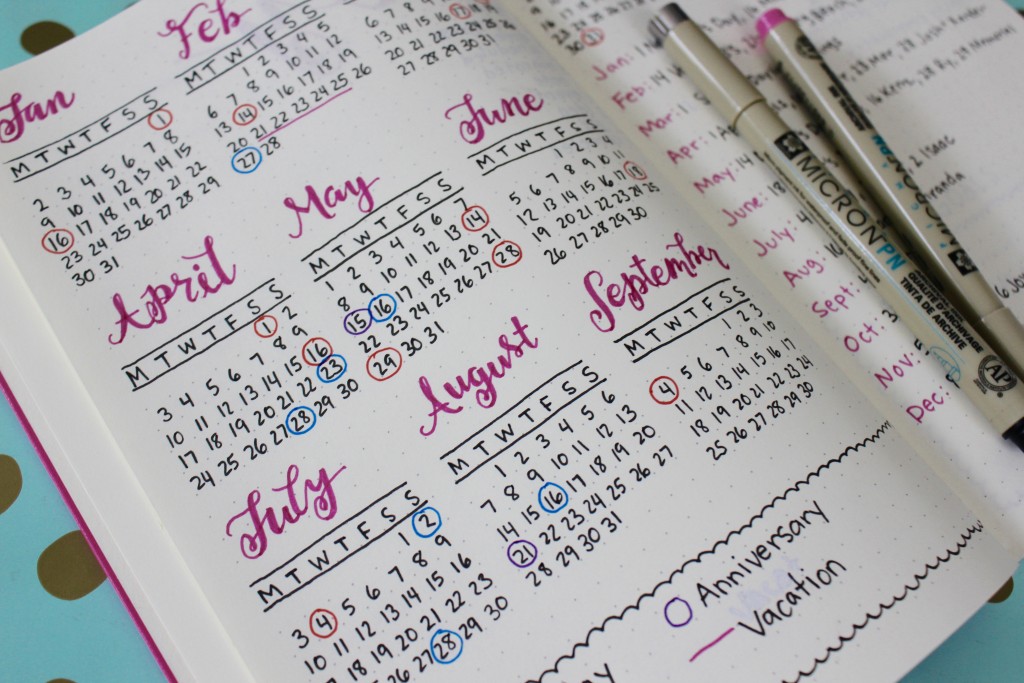 Jan
M T W T F S S
1
2 3 4 5 6 7 8
9 10 11 12 13 14 15
16 17 18 19 20 21 22
23 24 25 26 27 28 29
30 31
Feb
M T W T F S S
1 2 3 4 5
6 7 8 9 10 11 12
13 14 15 16 17 18 19
20 21 22 23 24 25 26
27 28
6 7 8 9
13 14 15 16 17
20 21 22 23 24 25
27 28 29 30 31
April
M T W T F S S
1 2
3 4 5 6 7 8 9
10 11 12 13 14 15 16
17 18 19 20 21 22 23
24 25 26 27 28 29 30
May
M T W T F S S
1 2 3 4 5 6 7
8 9 10 11 12 13 14
15 16 17 18 19 20 21
22 23 24 25 26 27 28
29 30 31
June
M T W T F S S
1 2 3 4
5 6 7 8 9 10 11
12 13 14 15 16 17 18
19 20 21 22 23 24 25
26 27 28 29 30
July
M T W T F S S
1 2
3 4 5 6 7 8 9
10 11 12 13 14 15 16
18 19 20 21 22 23
26 27 28 29 30
August
M T W T F S S
1 2 3 4 5 6
7 8 9 10 11 12 13
14 15 16 17 18 19 20
21 22 23 24 25 26 27
28 29 30 31
September
M T W T F S S
1 2 3
4 5 6 7 8 9 10
11 12 13 14 15 16 17
18 19 20 21 22 23 24
25 26 27 28 29 30
Anniversary
Vacation
Jan:
Feb: 14
Mar: 1
Apr: 1
May: 14
June: 18
July: 4
Aug: 16
Sept: 4
Oct: 3
Nov:
Dec:
2 Isaac
MICRON PN
QUALITÉ D'ARCHIVAGE
TINTA DE ARCHIVE
AP